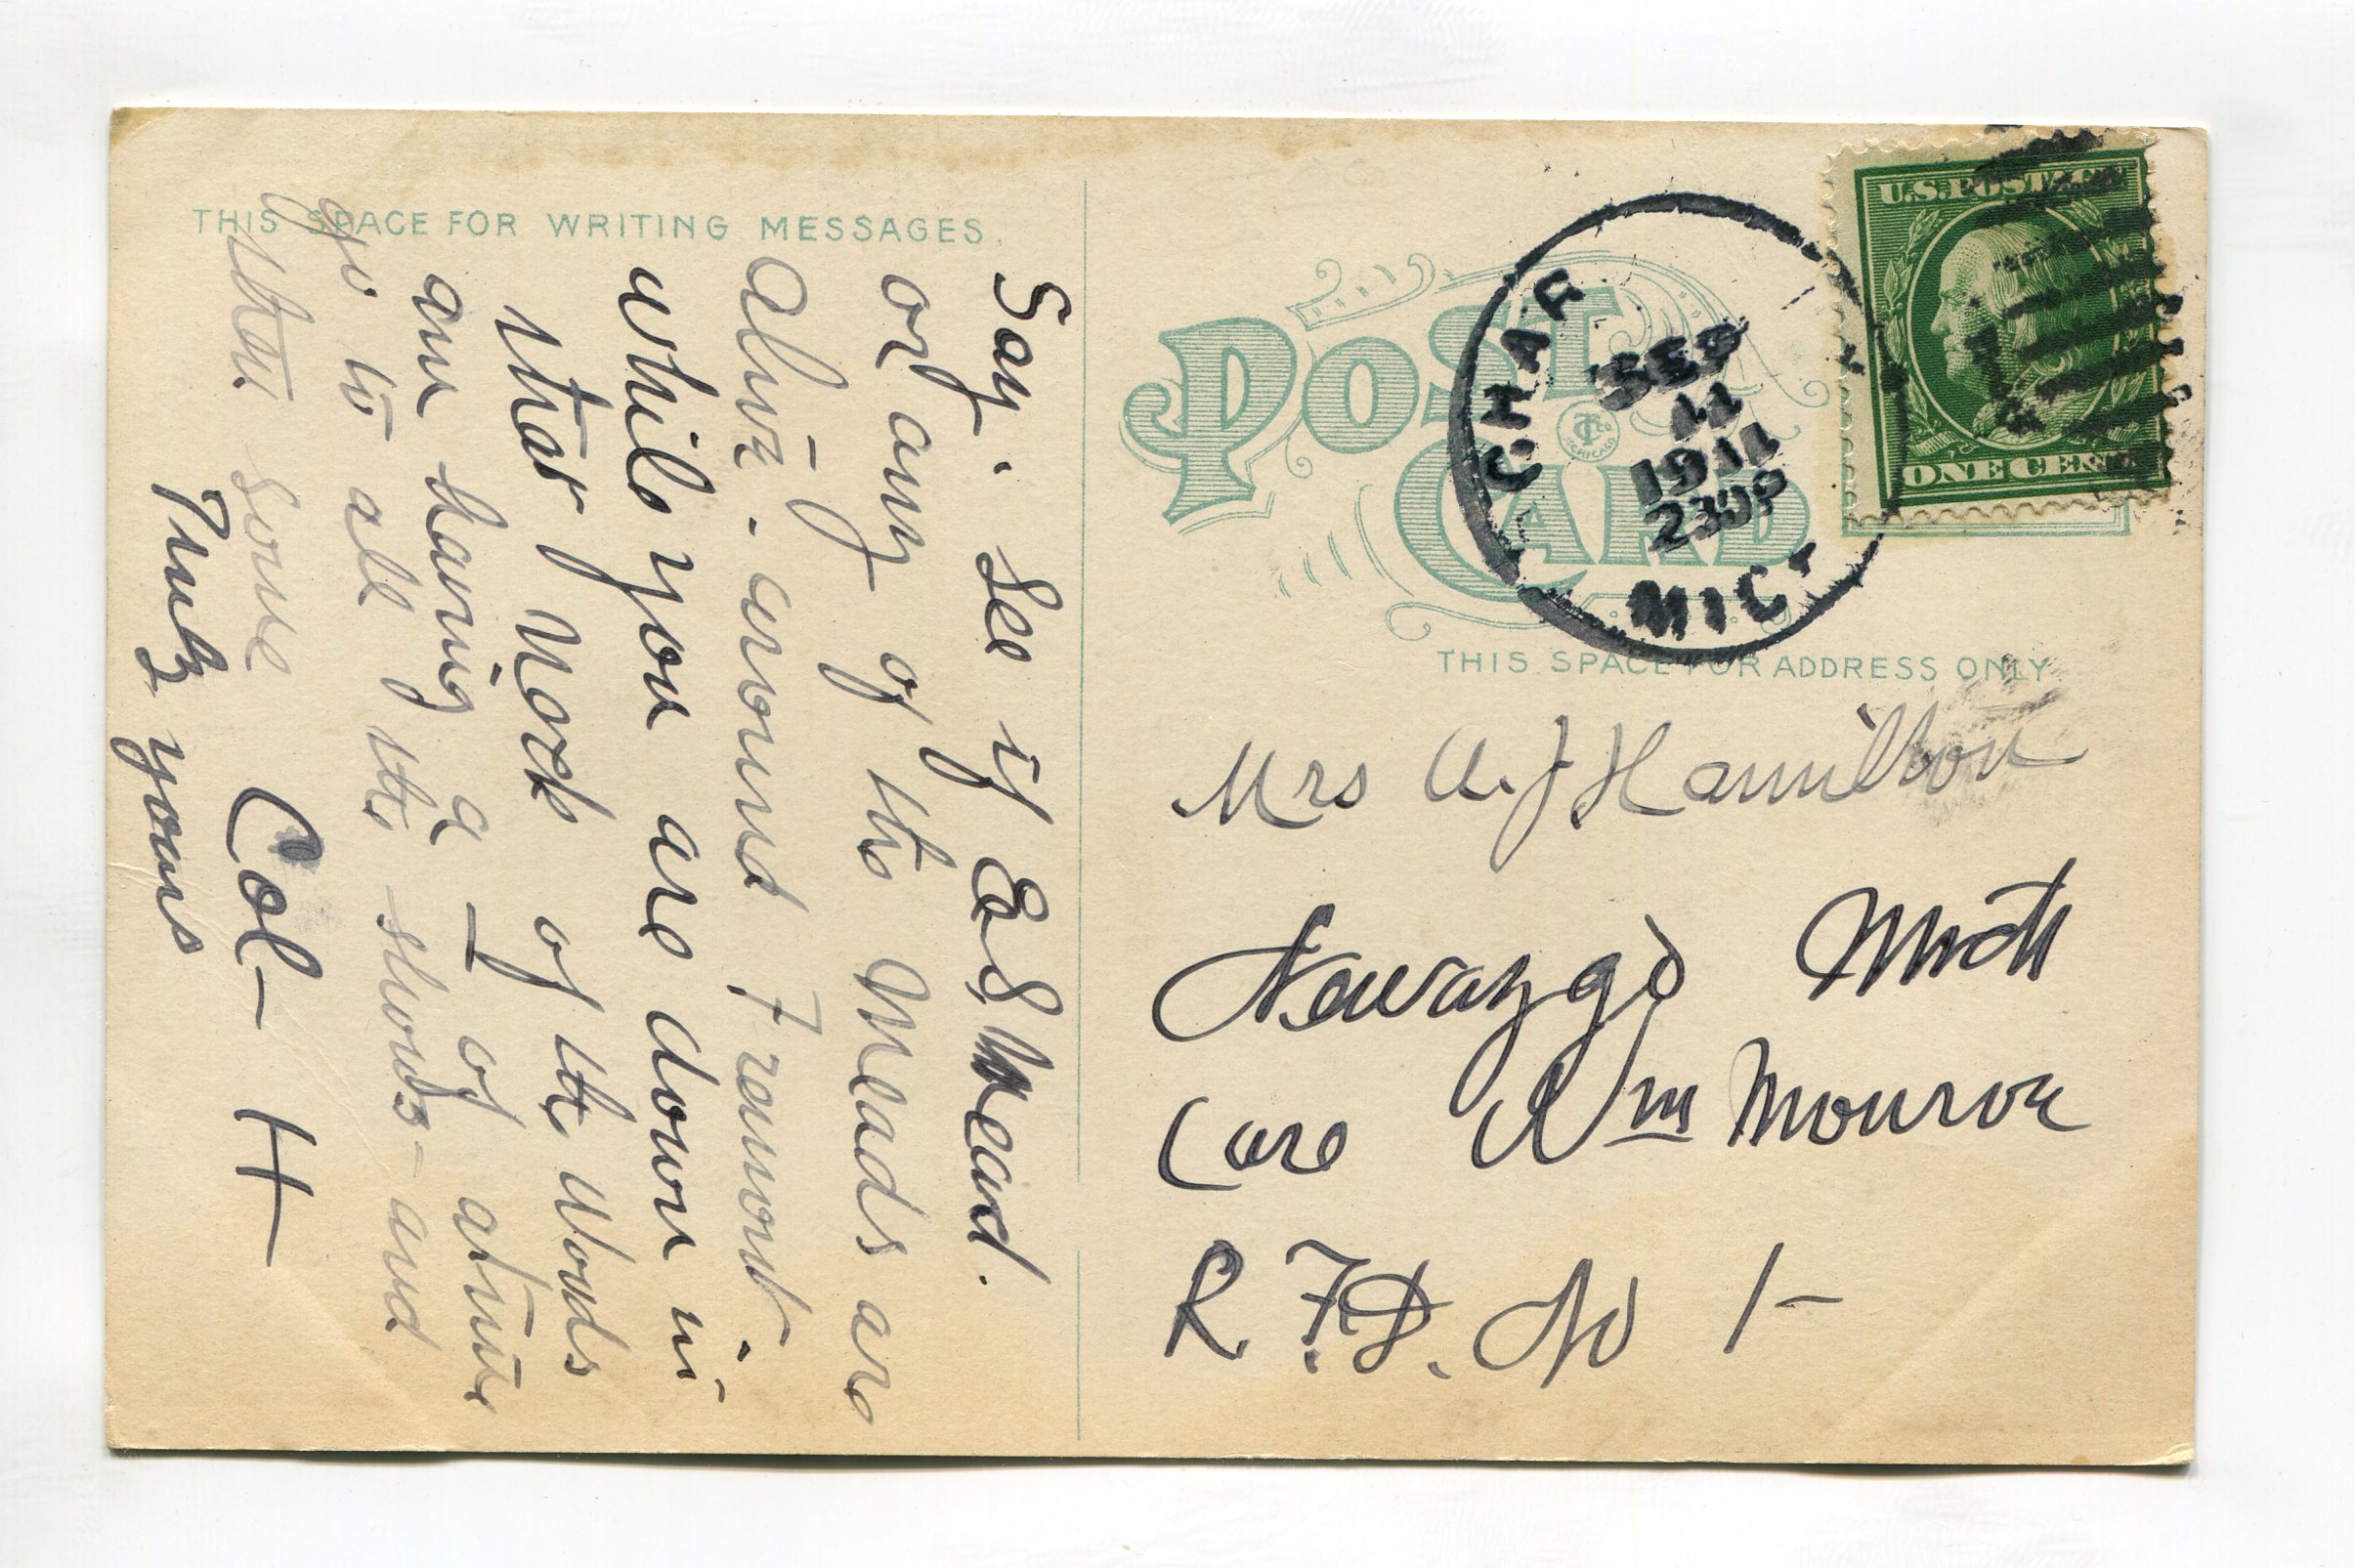 THIS SPACE FOR WRITING MESSAGES.
Say. See if E.S. Mead.
or any of the Meads are
alive - around Fremont.
while you are down in
that Neck of the Woods
are having a - of atime
go to all the shows - and
then some
Truly yours
Col - H
POST CARD
CHAR
SEP
11
1911
230P
MICH
U.S. POSTAGE
1
ONE CENT
THIS SPACE FOR ADDRESS ONLY
Mrs A. J Hamilton
Newaygo Mich
Care Wm Monroe
R. F. D. No 1-